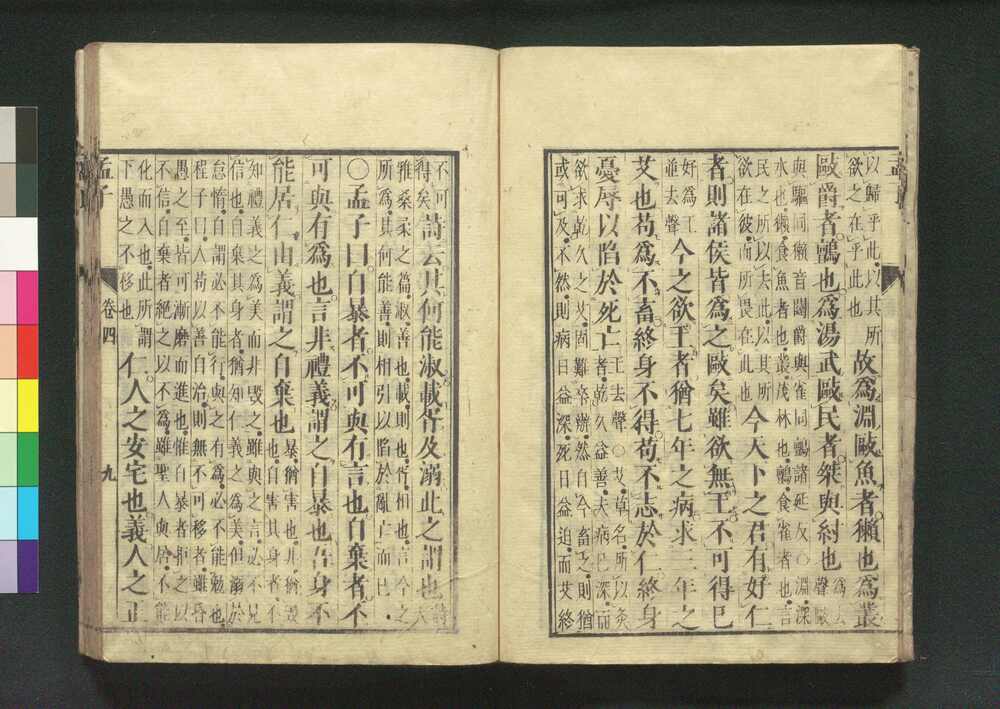 以歸乎此以其所
欲之在乎此也
故爲淵敺魚者獺也爲叢
敺爵者鸇也爲湯武敺民者桀與紂也
爲去
聲敺
與驅同獺音闥爵與雀同鸇諸延反○淵深
水也獺食魚者也叢茂林也鸇食雀者也言
民之所以去此以其所
欲在彼而所畏在此也
今天下之君有好仁
者則諸侯皆爲之敺矣雖欲無王不可得已
好爲王
並去聲
今之欲王者猶七年之病求三年之
艾也苟爲不畜終身不得苟不志於仁終身
憂辱以陷於死亡
王去聲○艾草名所以灸
者乾久益善夫病已深而
欲求乾久之艾固難卒辦然自今畜之則猶
或可及不然則病日益深死日益迫而艾終
不可
得矣
詩云其何能淑載胥及溺此之謂也
詩
大
雅桑柔之篇淑善也載則也胥相也言今之
所爲其何能善則相引以陷於亂亡而已
○孟子曰自暴者不可與有言也自棄者不
可與有爲也言非禮義謂之自暴也吾身不
能居仁由義謂之自棄也
暴猶害也非猶毀
也自害其身者不
知禮義之爲美而非毀之雖與之言必不見
信也自棄其身者猶知仁義之爲美但溺於
怠惰自謂必不能行與之有爲必不能勉也
程子曰人苟以善自治則無不可移者雖昏
愚之至皆可漸磨而進也惟自暴者拒之以
不信自棄者絕之以不爲雖聖人與居不能
化而入也此所謂
下愚之不移也
仁人之安宅也義人之正
孟子
卷四
九